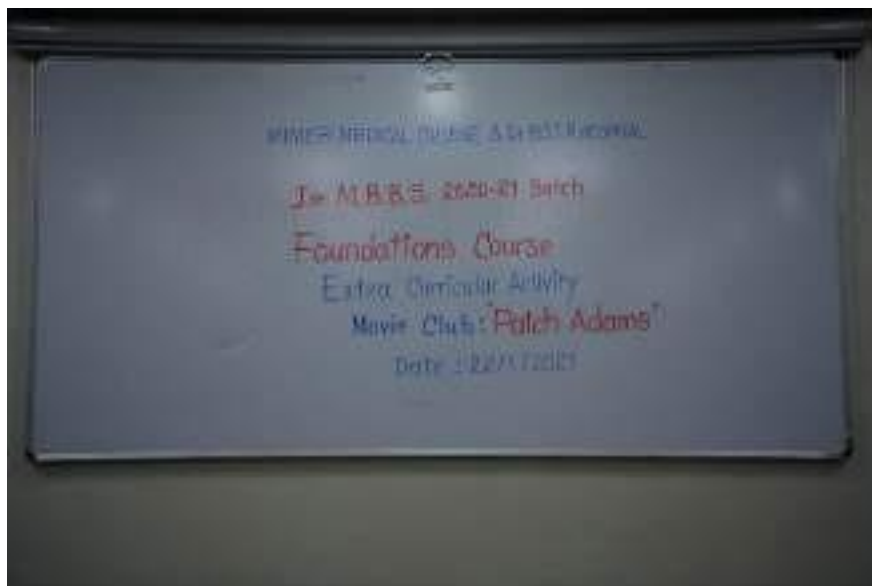 MIMER MEDICAL COLLEGE & Dr BSTR HOSPITAL
Ist M.B.B.S. 2020-21 Batch
Foundations Course
Extra Curricular Activity
Movie Club: "Patch Adams"
Date : 22/1/2021